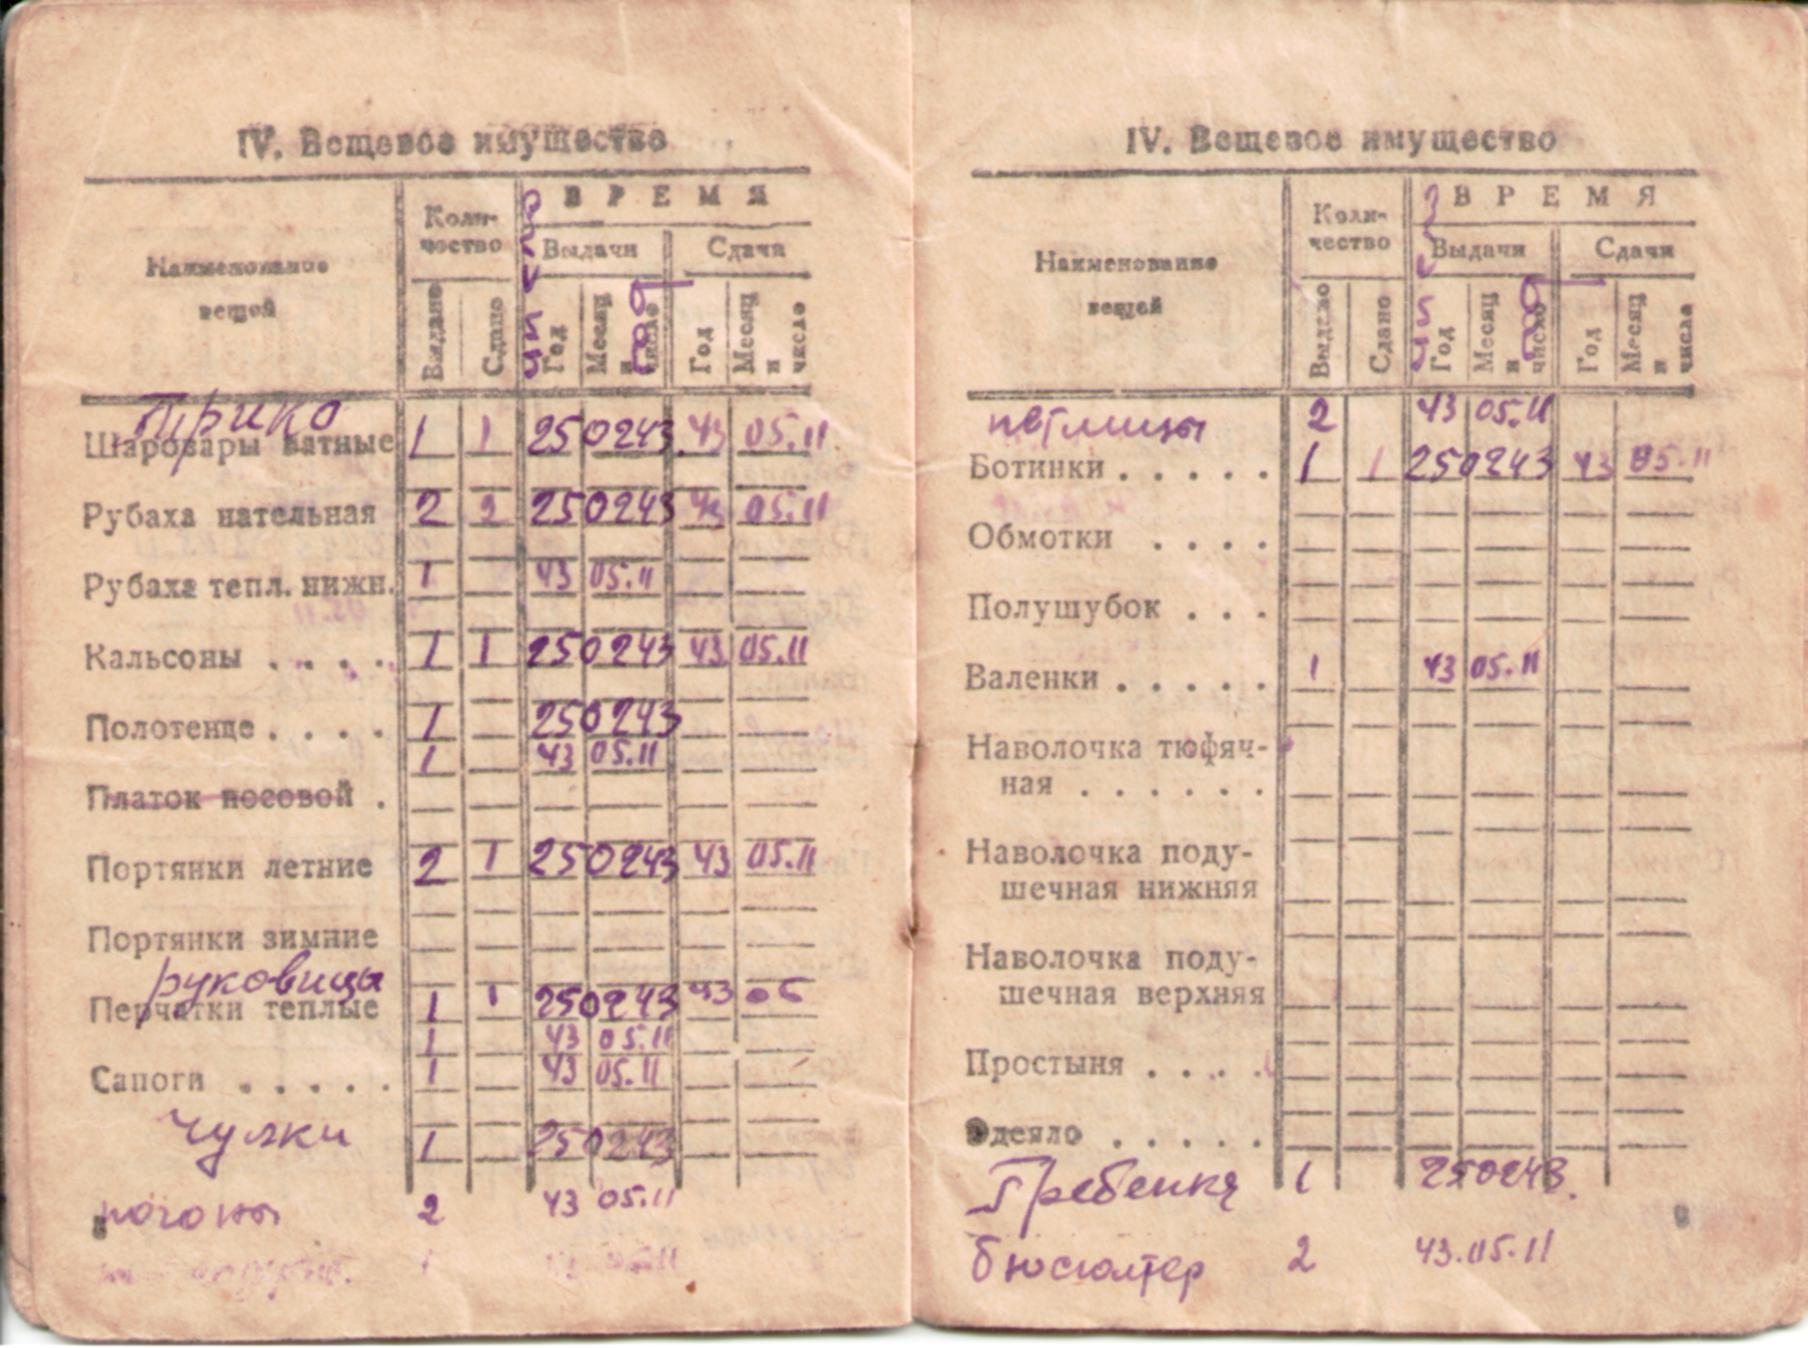 IV. Вещевое имущество
Наименование вещей
Коли-
чество
ВРЕМЯ
Выдачи
Сдачи
Выдано
Сдано
Год
Месяц и число
Год
Месяц и число
Трико
Шаровары ватные 1 1 250243 43 05.11
Рубаха нательная 2 2 250243 43 05.11
Рубаха тепл. нижн. 1 43 05.11
Кальсоны . . . . 1 1 250243 43 05.11
Полотенце . . . . 1 250243
1 43 05.11
Платок носовой .
Портянки летние 2 1 250243 43 05.11
Портянки зимние
руковицы
Перчатки теплые 1 1 250243 43 05
1 43 05.11
Сапоги . . . . . 1 43 05.11
Чулки 1 250243
погоны 2 43 05.11
8
IV. Вещевое имущество
Наименование вещей
Коли-
чество
ВРЕМЯ
Выдачи
Сдачи
Выдано
Сдано
Год
Месяц и число
Год
Месяц и число
петлицы 2 43 05.11
Ботинки . . . . . 1 1 250243 43 05.11
Обмотки . . . .
Полушубок . . .
Валенки . . . . . 1 43 05.11
Наволочка тюфяч-
ная . . . . . .
Наволочка поду-
шечная нижняя
Наволочка поду-
шечная верхняя
Простыня . . . .
Одеяло . . . . .
Гребенка 1 250243.
9
бюсголтер 2 43.05.11